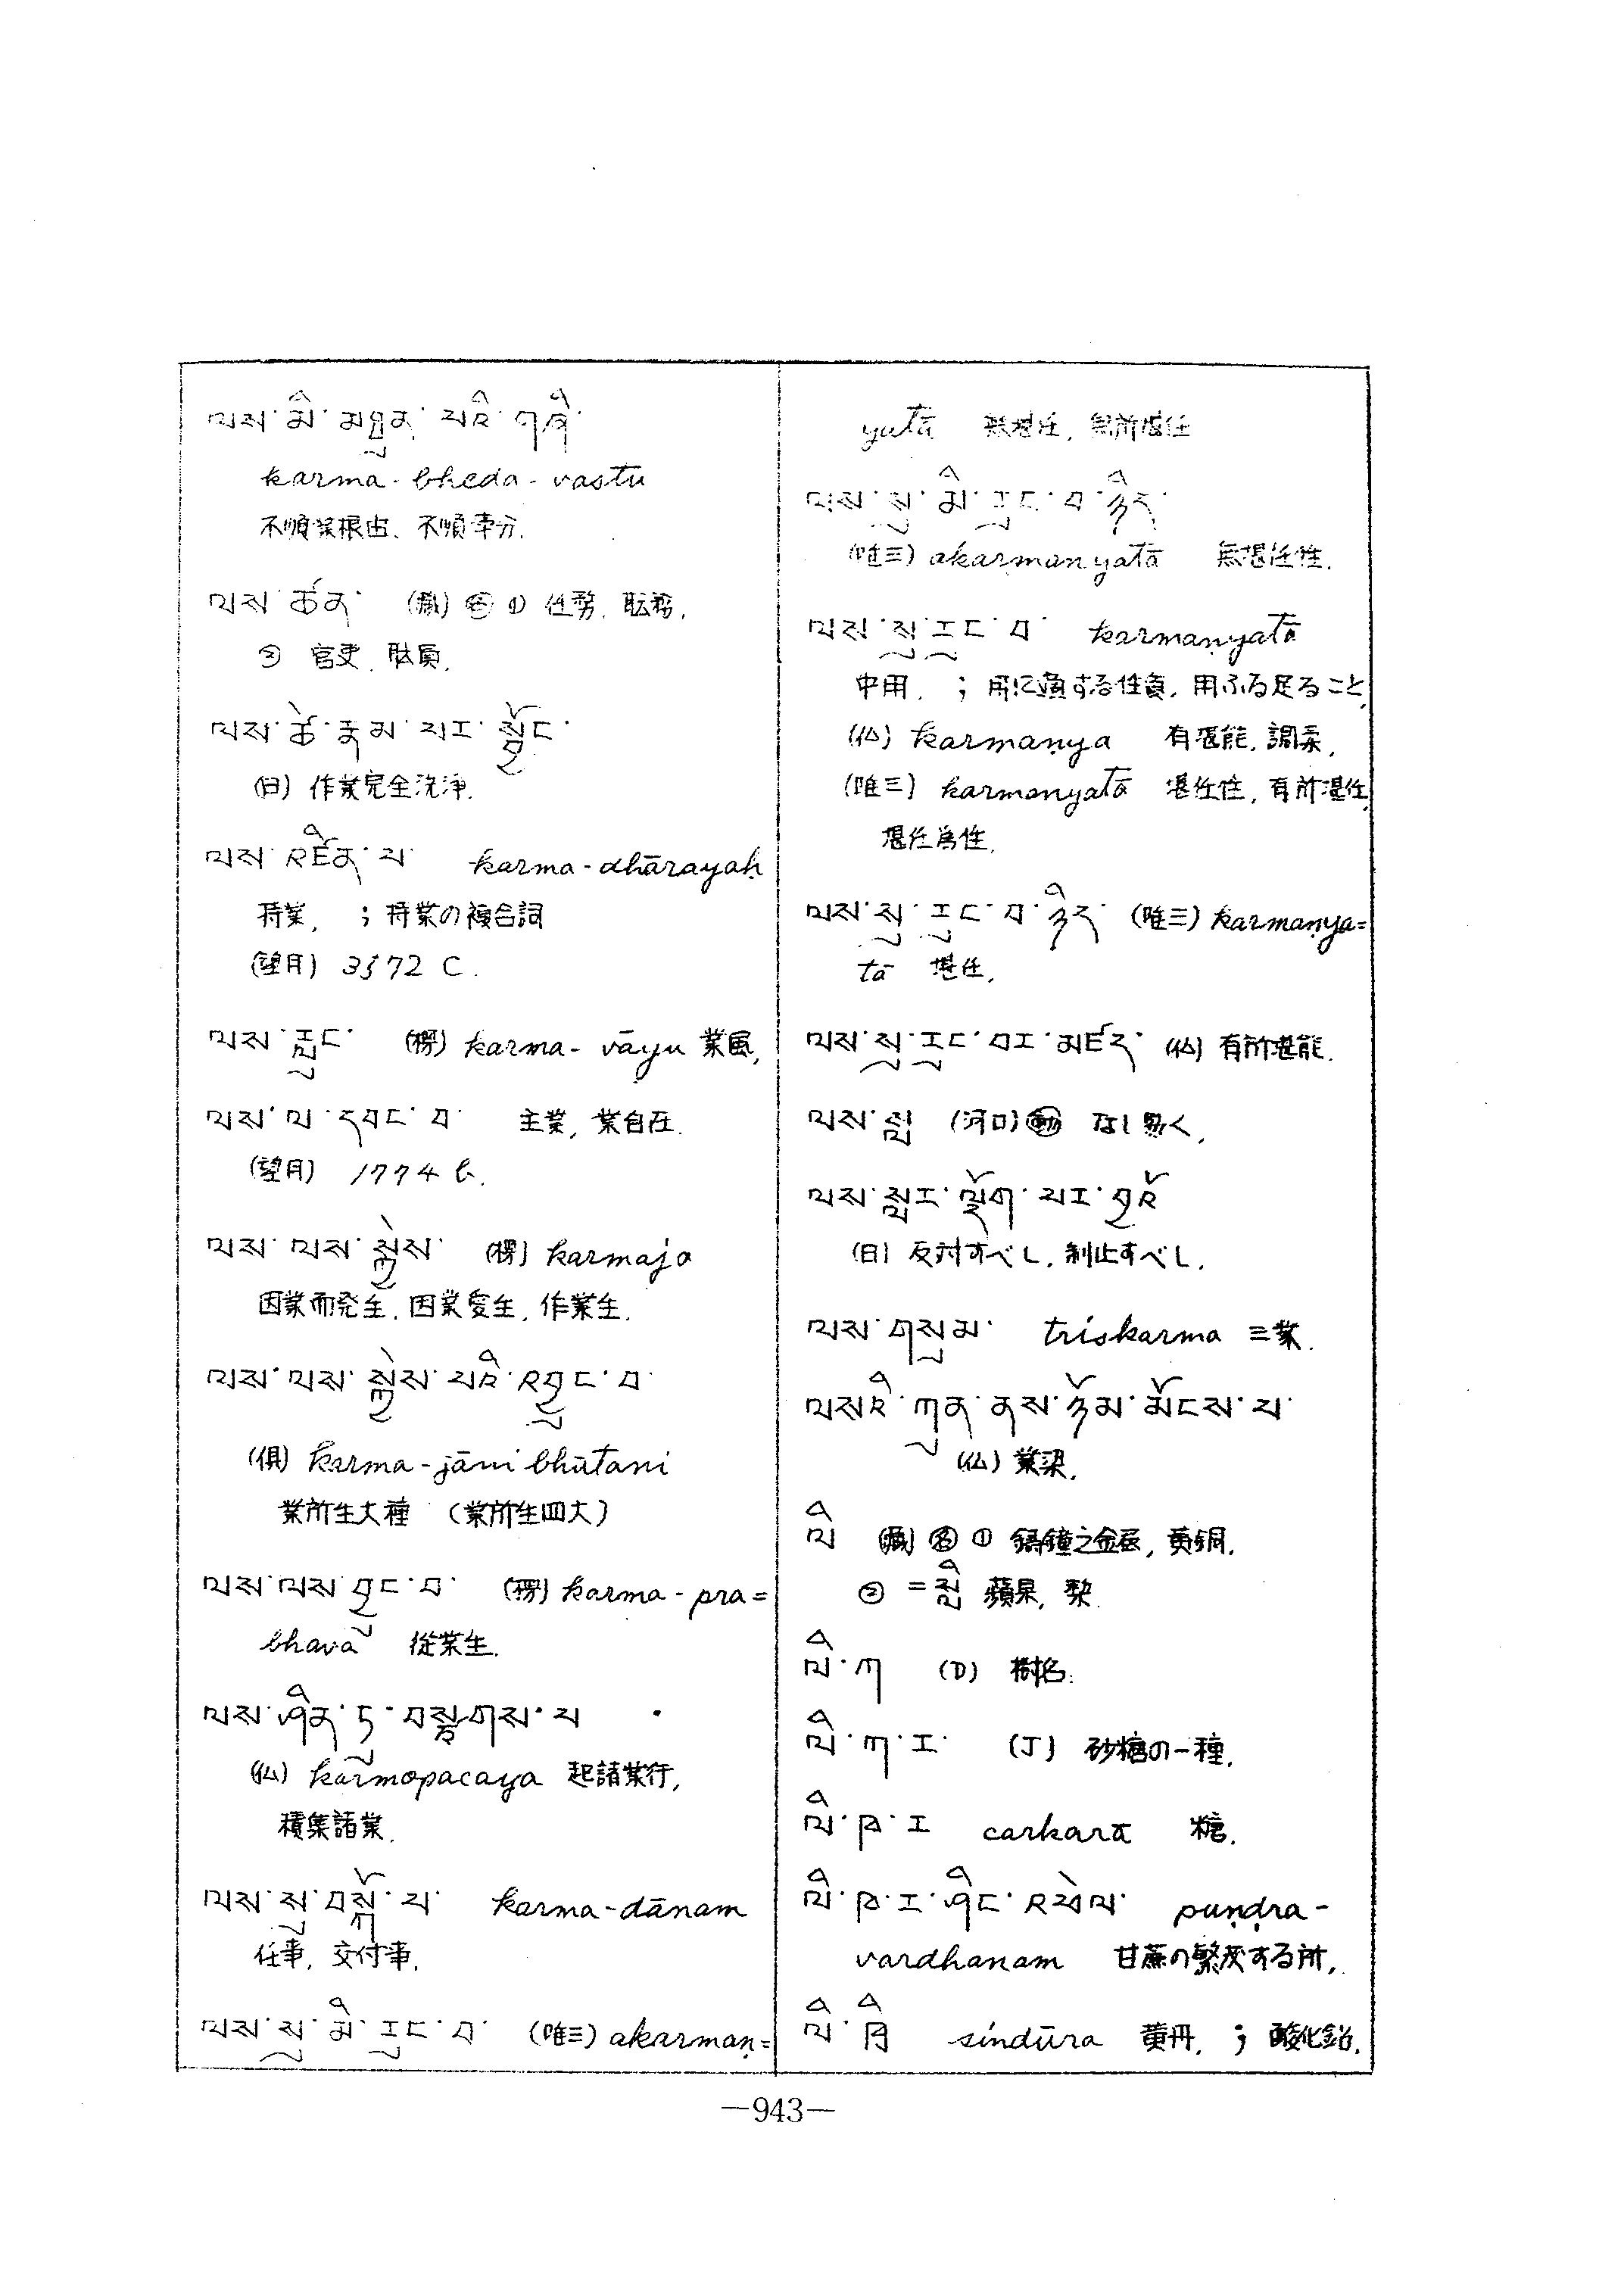 ལས་མི་མཐུན་པའི་གཞི་
karma-bheda-vastu
不順業根由、不順事分.
ལས་ཚན་ (藏) 名 ① 任務, 職務,
② 官吏, 職員.
ལས་ཚེ་རྣམ་པར་སྦྱོང་
(日) 作業完全洗浄.
ལས་འཛིན་པ་ karma-dhārayaḥ
持業, ; 持業の複合詞
(望月) 3572 C.
ལས་རླུང་ (楞) karma-vāyu 業風,
ལས་ལ་དབང་བ་ 主業, 業自在.
(望月) 1774 b.
ལས་ལས་སྐྱེས་ (楞) karmaja
因業而発生, 因業受生, 作業生.
ལས་ལས་སྐྱེས་པའི་འབྱུང་བ་
(倶) karma-jāni bhūtani
業所生大種 (業所生四大)
ལས་ལས་བྱུང་བ་ (楞) karma-pra=
bhava 從業生.
ལས་ཤིན་ཏུ་བསྟགས་པ
(仏) karmopacaya 起諸業行,
積集諸業.
ལས་སུ་བསྐོ་བ་ karma-dānam
任事, 交付事.
ལས་སུ་མི་རུང་བ་ (唯三) akarmaṇ=
yatā 無堪任, 無所堪任
ལས་སུ་མི་རུང་བ་ཉིད་
(唯三) akarmaṇyatā 無堪任性.
ལས་སུ་རུང་བ་ karmaṇyatā
中用, ; 用に適する性質, 用ふる足ること,
(仏) karmaṇya 有堪能, 調柔,
(唯三) karmaṇyatā 堪任性, 有所堪任,
堪任為性.
ལས་སུ་རུང་བ་ཉིད་ (唯三) karmaṇya=
tā 堪任,
ལས་སུ་རུང་བར་མཛད་ (仏) 有所堪能.
ལས་སླ (河口) 動 なし易く,
ལས་སླར་ལྡོག་པར་བྱའོ
(日) 反対すべし, 制止すべし,
ལས་གསུམ་ triskarma 三業.
ལས་འི་ཀུན་ནས་ཉོན་མོངས་པ་
(仏) 業染,
ལི (藏) 名 ① 鑄鐘之金屬, 黄銅,
② =སླི 蘋果, 梨.
ལི་ཀ (D) 樹名.
ལི་ཀ་ར་ (J) 砂糖の一種,
ལི་ཁ་ར carkarā 糖.
ལི་ཁ་ར་ཤིང་འཕེལ་ puṇḍra-
vardhanam 甘蔗の繁茂する所,
ལི་ཁྲི sindūra 黄丹, ; 酸化鉛.
—943—